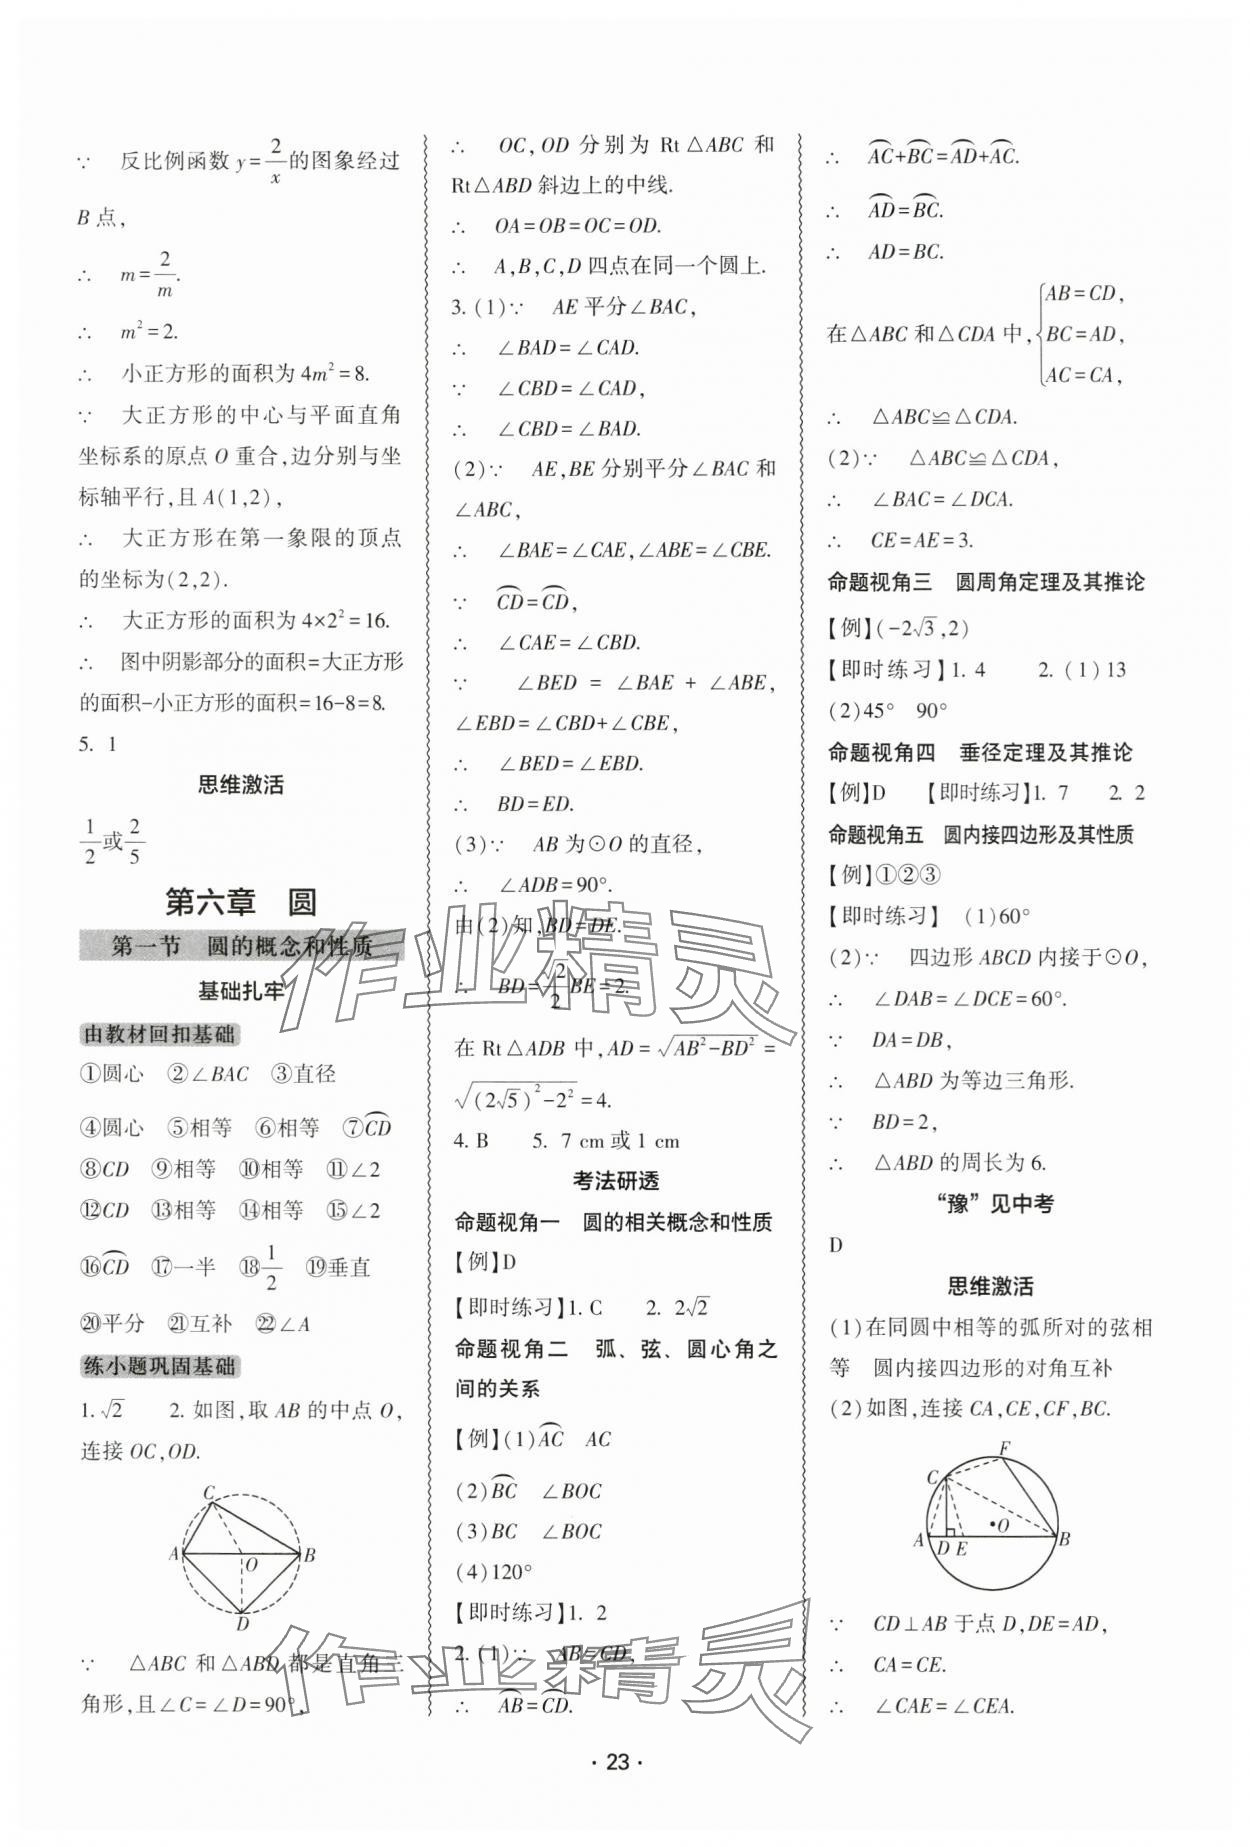 ∵ 反比例函数 y=2/x 的图象经过
B 点,
∴ m=2/m.
∴ m²=2.
∴ 小正方形的面积为 4m²=8.
∵ 大正方形的中心与平面直角
坐标系的原点 O 重合,边分别与坐
标轴平行,且 A(1,2),
∴ 大正方形在第一象限的顶点
的坐标为(2,2).
∴ 大正方形的面积为 4×2²=16.
∴ 图中阴影部分的面积=大正方形
的面积-小正方形的面积=16-8=8.
5. 1
思维激活
1/2或2/5
第六章 圆
第一节 圆的概念和性质
基础扎牢
由教材回扣基础
①圆心 ②∠BAC ③直径
④圆心 ⑤相等 ⑥相等 ⑦C͡D
⑧CD ⑨相等 ⑩相等 ⑪∠2
⑫CD ⑬相等 ⑭相等 ⑮∠2
⑯C͡D ⑰一半 ⑱1/2 ⑲垂直
⑳平分 ㉑互补 ㉒∠A
练小题巩固基础
1. √2 2. 如图,取 AB 的中点 O,
连接 OC,OD.
C
A
O
B
D
∵ △ABC 和 △ABD 都是直角三
角形,且∠C=∠D=90°,
∴ OC,OD 分别为 Rt△ABC 和
Rt△ABD 斜边上的中线.
∴ OA=OB=OC=OD.
∴ A,B,C,D 四点在同一个圆上.
3. (1)∵ AE 平分∠BAC,
∴ ∠BAD=∠CAD.
∵ ∠CBD=∠CAD,
∴ ∠CBD=∠BAD.
(2)∵ AE,BE 分别平分∠BAC 和
∠ABC,
∴ ∠BAE=∠CAE,∠ABE=∠CBE.
∵ C͡D=C͡D,
∴ ∠CAE=∠CBD.
∵ ∠BED = ∠BAE + ∠ABE,
∠EBD=∠CBD+∠CBE,
∴ ∠BED=∠EBD.
∴ BD=ED.
(3)∵ AB 为⊙O 的直径,
∴ ∠ADB=90°.
由(2)知,BD=DE.
∴ BD=√2/2 BE=2.
在 Rt△ADB 中,AD=√(AB²-BD²)=
√((2√5)²-2²)=4.
4. B 5. 7 cm 或 1 cm
考法研透
命题视角一 圆的相关概念和性质
【例】D
【即时练习】1. C 2. 2√2
命题视角二 弧、弦、圆心角之
间的关系
【例】(1)A͡C AC
(2)B͡C ∠BOC
(3)BC ∠BOC
(4)120°
【即时练习】1. 2
2. (1)∵ AB=CD,
∴ A͡B=C͡D.
∴ A͡C+B͡C=A͡D+A͡C.
∴ A͡D=B͡C.
∴ AD=BC.
在△ABC 和△CDA 中,{AB=CD,
BC=AD,
AC=CA,
∴ △ABC≌△CDA.
(2)∵ △ABC≌△CDA,
∴ ∠BAC=∠DCA.
∴ CE=AE=3.
命题视角三 圆周角定理及其推论
【例】(-2√3,2)
【即时练习】1. 4 2. (1)13
(2)45° 90°
命题视角四 垂径定理及其推论
【例】D 【即时练习】1. 7 2. 2
命题视角五 圆内接四边形及其性质
【例】①②③
【即时练习】 (1)60°
(2)∵ 四边形 ABCD 内接于⊙O,
∴ ∠DAB=∠DCE=60°.
∵ DA=DB,
∴ △ABD 为等边三角形.
∵ BD=2,
∴ △ABD 的周长为 6.
“豫”见中考
D
思维激活
(1)在同圆中相等的弧所对的弦相
等 圆内接四边形的对角互补
(2)如图,连接 CA,CE,CF,BC.
F
C
O
A
D
E
B
∵ CD⊥AB 于点 D,DE=AD,
∴ CA=CE.
∴ ∠CAE=∠CEA.
· 23 ·
作业精灵
作业精灵